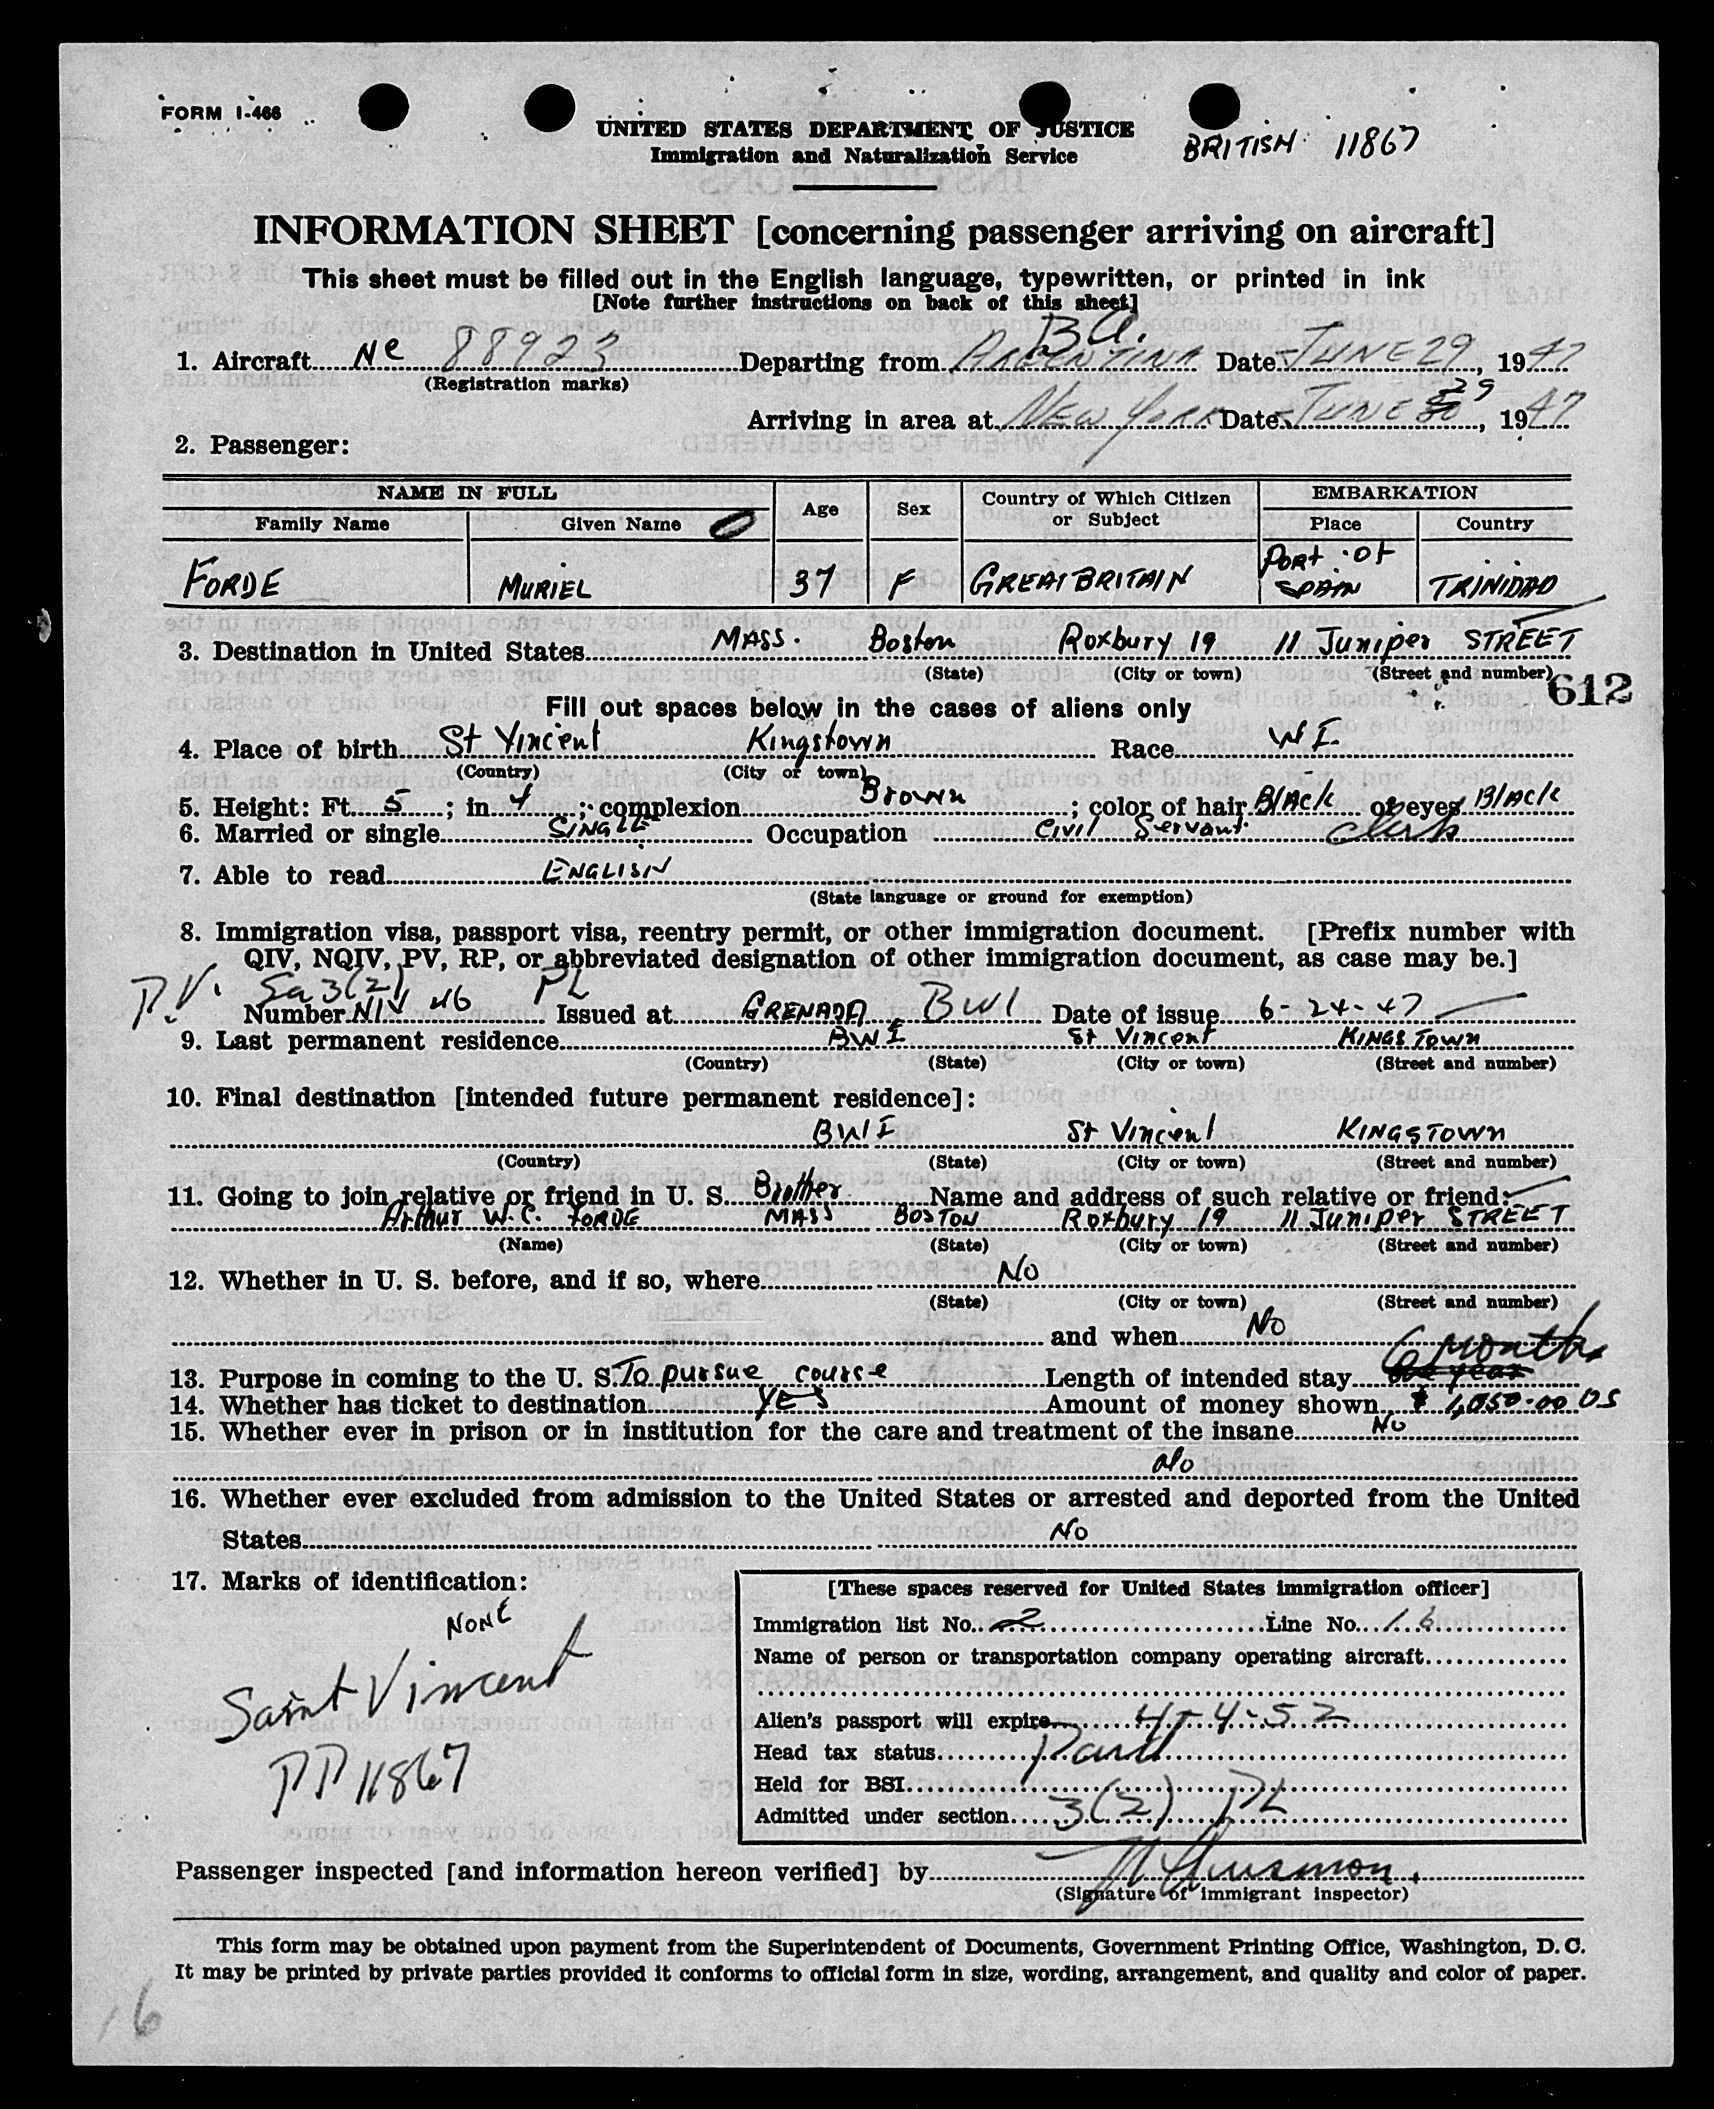 FORM I-466
UNITED STATES DEPARTMENT OF JUSTICE
Immigration and Naturalization Service
BRITISH 11867
INFORMATION SHEET [concerning passenger arriving on aircraft]
This sheet must be filled out in the English language, typewritten, or printed in ink
[Note further instructions on back of this sheet]
B.A.
1. Aircraft Nc 88923 Departing from ARGENTINA Date JUNE 29, 1947
(Registration marks)
29
Arriving in area at New York Date JUNE 30, 1947
2. Passenger:
NAME IN FULL Age Sex Country of Which Citizen or Subject EMBARKATION
Family Name Given Name Place Country
FORDE MURIEL 37 F GREAT BRITAIN PORT of SPAIN TRINIDAD
3. Destination in United States MASS. Boston Roxbury 19 11 Juniper STREET
(State) (City or town) (Street and number)
612
Fill out spaces below in the cases of aliens only
4. Place of birth St Vincent Kingstown Race W I.
(Country) (City or town)
5. Height: Ft. 5; in. 4; complexion Brown; color of hair Black of eyes Black
6. Married or single SINGLE Occupation Civil Servant Clerk
7. Able to read ENGLISH
(State language or ground for exemption)
8. Immigration visa, passport visa, reentry permit, or other immigration document. [Prefix number with
QIV, NQIV, PV, RP, or abbreviated designation of other immigration document, as case may be.]
P.V. Sa 3(2) PL
Number NIV 46 Issued at GRENADA BWI Date of issue 6-24-47
9. Last permanent residence BWI St Vincent KINGSTOWN
(Country) (State) (City or town) (Street and number)
10. Final destination [intended future permanent residence]:
BWI St Vincent KINGSTOWN
(Country) (State) (City or town) (Street and number)
11. Going to join relative or friend in U. S. Brother Name and address of such relative or friend:
Arthur W.C. FORDE MASS BOSTON Roxbury 19 11 Juniper STREET
(Name) (State) (City or town) (Street and number)
12. Whether in U. S. before, and if so, where No
(State) (City or town) (Street and number)
and when No
6 months
13. Purpose in coming to the U. S. To pursue course Length of intended stay one year
14. Whether has ticket to destination YES Amount of money shown $ 1,050.00 US
15. Whether ever in prison or in institution for the care and treatment of the insane No
No
16. Whether ever excluded from admission to the United States or arrested and deported from the United
States No
17. Marks of identification:
NONE
Saint Vincent
PP 11867
[These spaces reserved for United States immigration officer]
Immigration list No. 2 Line No. 16
Name of person or transportation company operating aircraft
Alien's passport will expire 4-4-52
Head tax status Paid
Held for BSI
Admitted under section 3(2) PL
Passenger inspected [and information hereon verified] by
(Signature of immigrant inspector)
This form may be obtained upon payment from the Superintendent of Documents, Government Printing Office, Washington, D. C.
It may be printed by private parties provided it conforms to official form in size, wording, arrangement, and quality and color of paper.
16